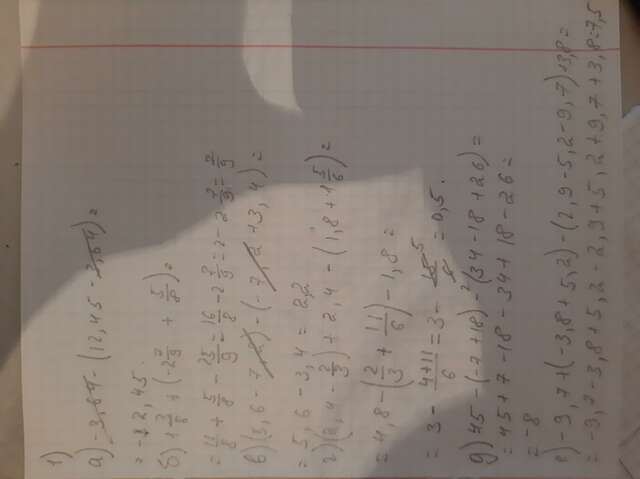 1)
а) -3,64 - (12,45 - 3,64) =
= -12,45.
б) 1 3/8 + (-2 7/9 + 5/8) =
= 11/8 + 5/8 - 25/9 = 16/8 - 2 7/9 = 2 - 2 7/9 = 7/9
в) (5,6 - 7,2) - (-7,2 + 3,4) =
= 5,6 - 3,4 = 2,2
г) (2,4 - 2/3) + 2,4 - (1,8 + 1 5/6) =
= 4,8 - (2/3 + 11/6) - 1,8 =
= 3 - 4+11/6 = 3 - 15/6 = 0,5.
д) 45 - (-7 + 18) - (34 - 18 + 26) =
= 45 + 7 - 18 - 34 + 18 - 26 =
= -8
е) -9,7 + (-3,8 + 5,2) - (2,9 - 5,2 - 9,7) + 3,8 =
= -9,7 - 3,8 + 5,2 - 2,9 + 5,2 + 9,7 + 3,8 = 7,5